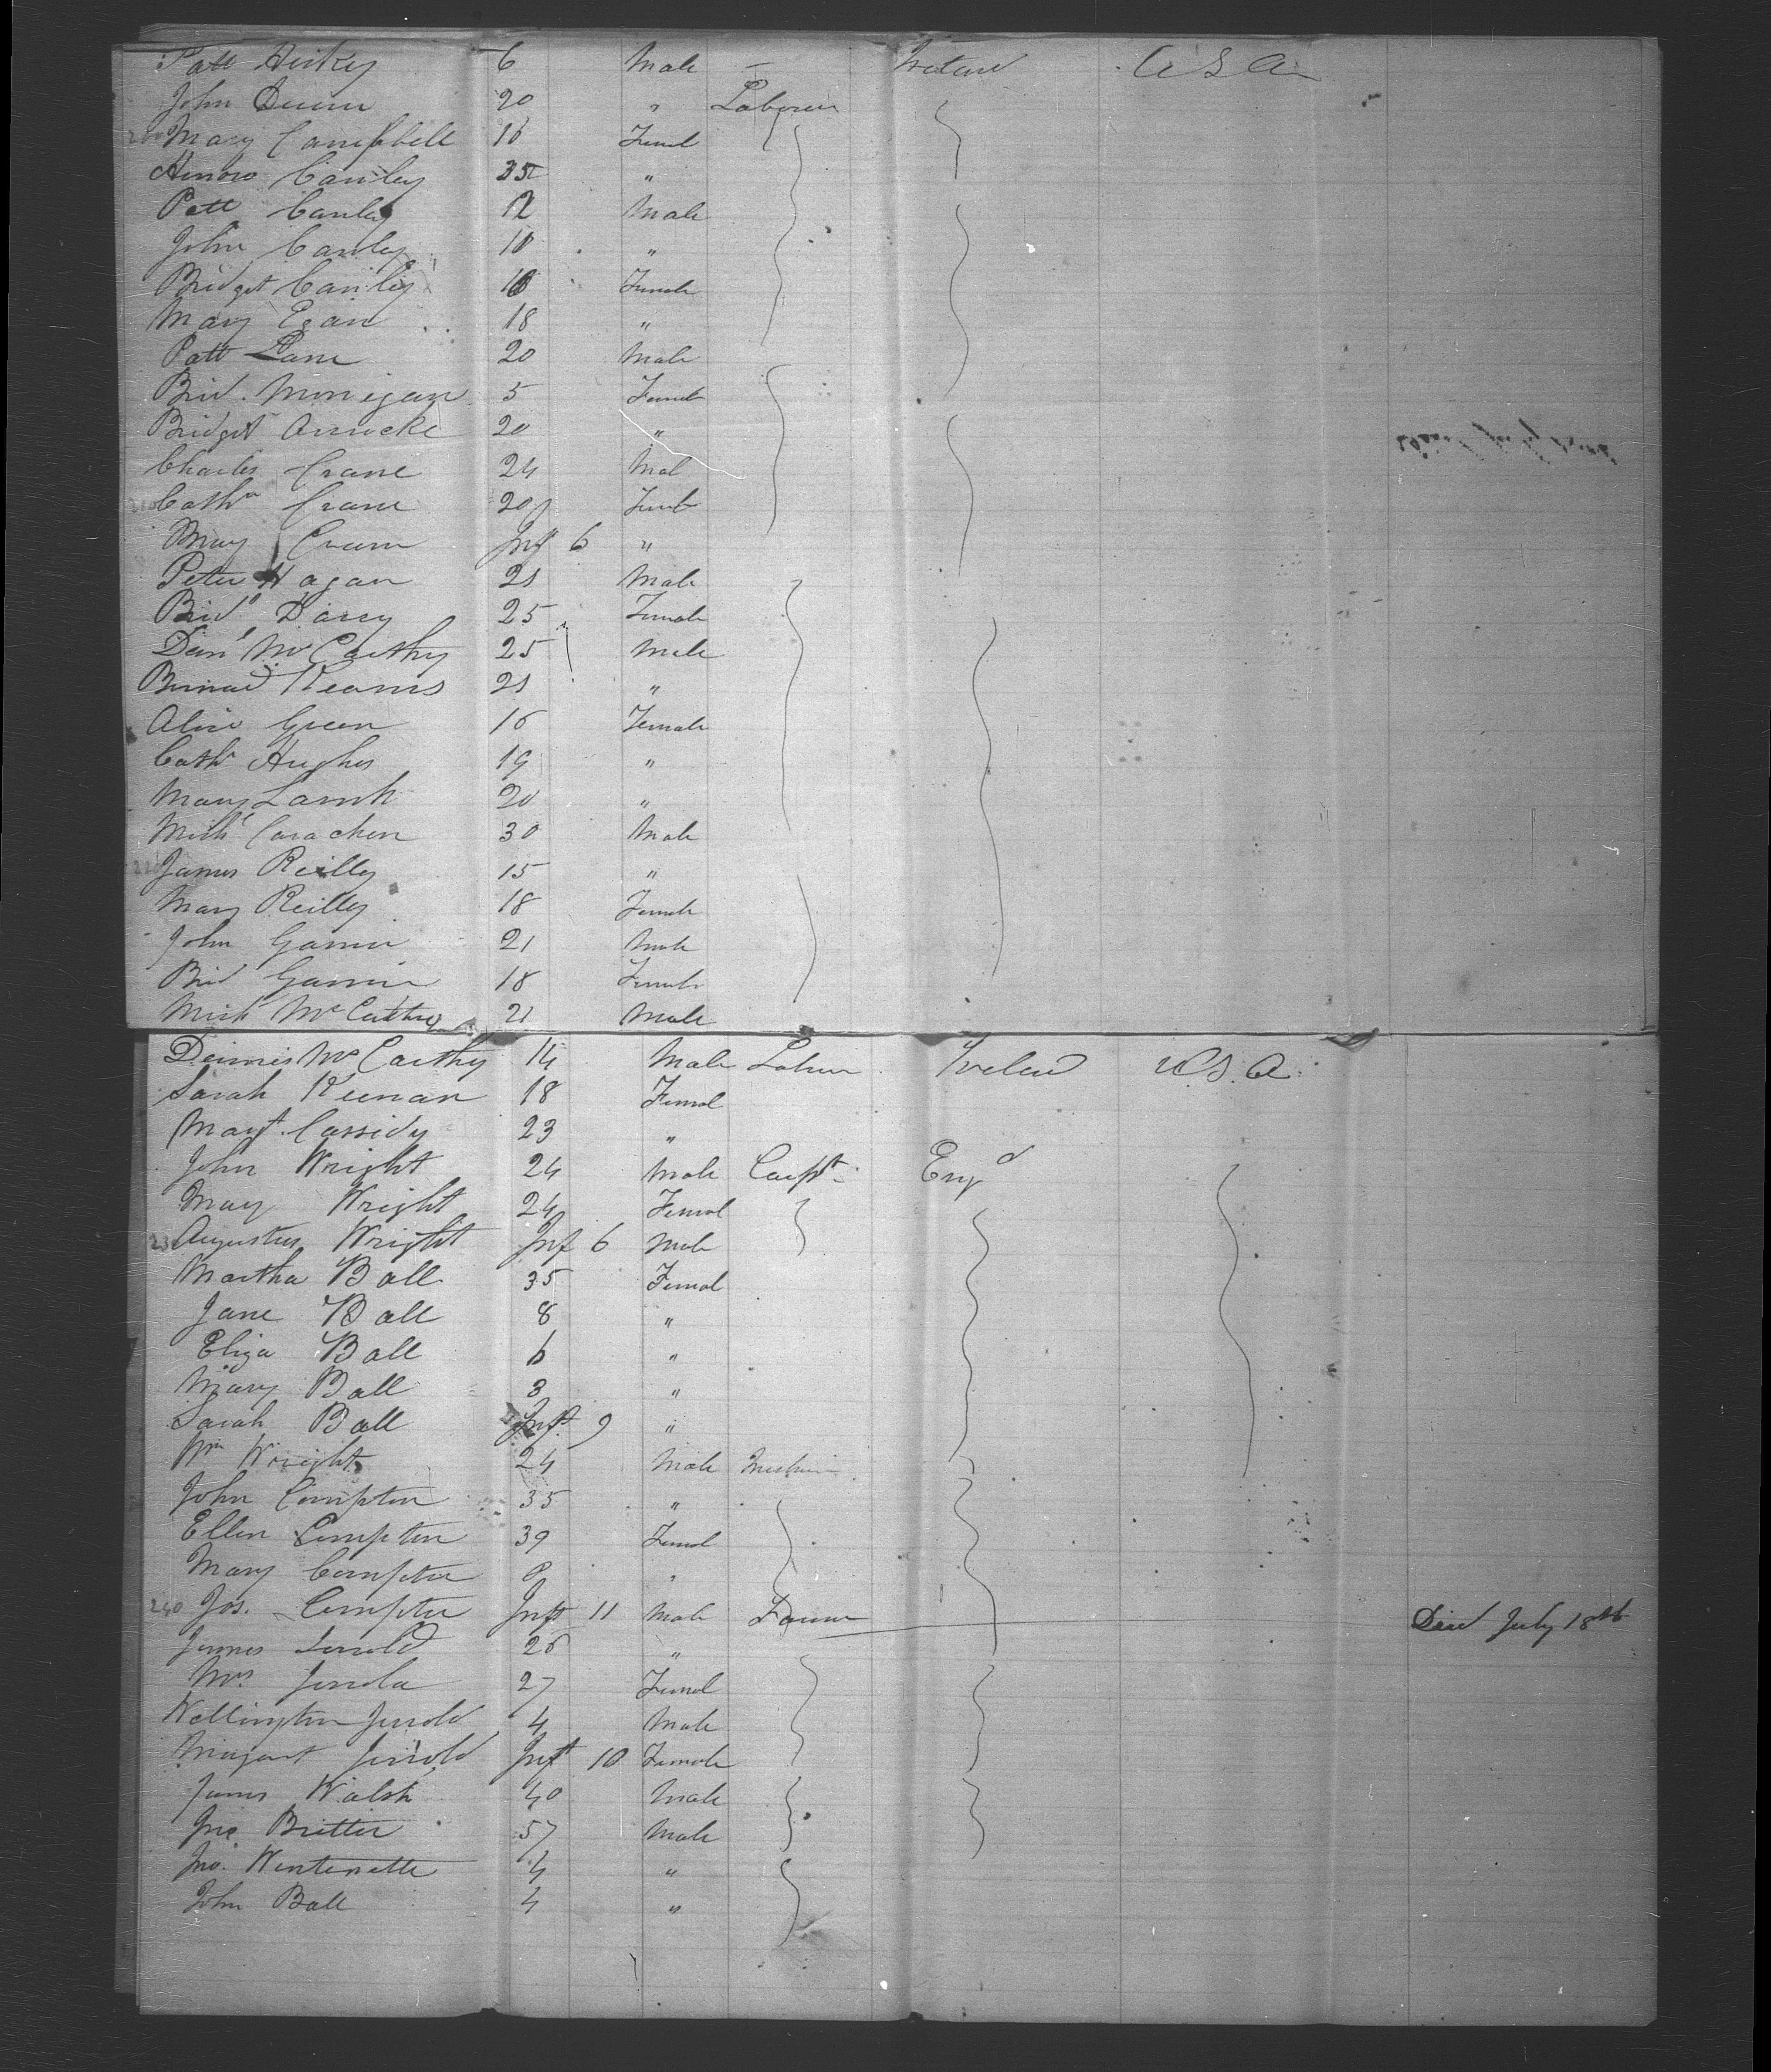 Patt Hickey 6 Male – Ireland U S A
John Dunn 20 " Laborer
200 Mary Campbell 16 Femal
Honora Canley 35 "
Patt Canley 12 Male
John Canley 10 "
Bridget Canley 16 Female
Mary Egan 18 "
Patt Lane 20 Male
Brid. Monigan 5 Female
Bridget 20 "
Charles Crane 24 Mal
210 Cathn Crane 20 Femle
Mary Crane Inf 6 "
Peter Hagan 21 Male
Bridt Darcy 25 Female
Danl McCarthy 25 Male
Bernard Kearns 21 "
Alice Green 16 Female
Cath Hughes 19 "
Mary Lamb 20 "
Michl 30 Male
220 James Reilly 15 "
Mary Reilly 18 Female
John 21 Male
Brid 18 Female
Mich McCarthy 21 Male
Dennis McCarthy 14 Male Labour Ireland U.S.A.
Sarah Keenan 18 Femal
Margt. Cassidy 23 "
John Wright 24 Male Carpt. Engd
Mary Wright 24 Femal
230 Augustus Wright Inf 6 Male
Martha Ball 35 Femal
Jane Ball 8 "
Eliza Ball 6 "
Mary Ball 3 "
Sarah Ball Inft. 9 "
Wm Wright 24 Male
John Compton 35 "
Ellen Compton 39 Femal
Mary Compton 8 "
240 Jos. Compton Inft 11 Male Farmer Died July 18th
James Jerrold 26 "
Mrs Jerrold 27 Femal
Wellington Jerrold 4 Male
Margaret Jerrold Inft 10 Female
James Walsh 40 Male
Jno Britter 57 Male
Jno. 4 "
John Ball 4 "